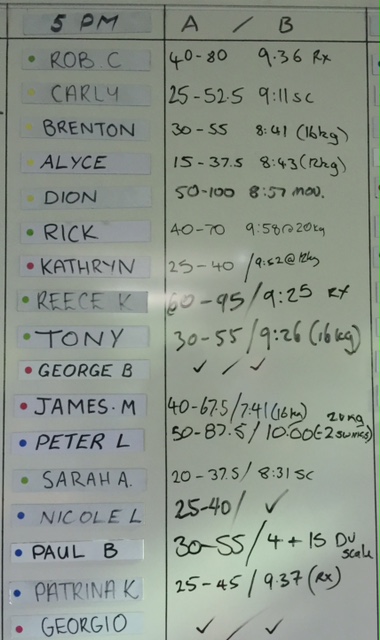 5 PM A / B
ROB. C 40-80 9.36 Rx
CARLY 25-52.5 9:11 sc
BRENTON 30-55 8:41 (16kg)
ALYCE 15-37.5 8:43 (12kg)
DION 50-100 8:57 mod.
RICK 40-70 9:58@20kg
KATHRYN 25-40 /9:52@12kg
REECE K 60-95/9:25 Rx
TONY 30-55/9:26 (16kg)
GEORGE B ✓ / ✓
JAMES. M 40-67.5/7:41 (16kg)
PETER L 50-87.5/10:00 (-2 swings) 20kg
SARAH A. 20-37.5/8:31 sc
NICOLE L 25-40/ ✓
PAUL B 30-55/4+15 DU scale
PATRINA K 25-45/9.37 (Rx)
GEORGIO ✓ / ✓